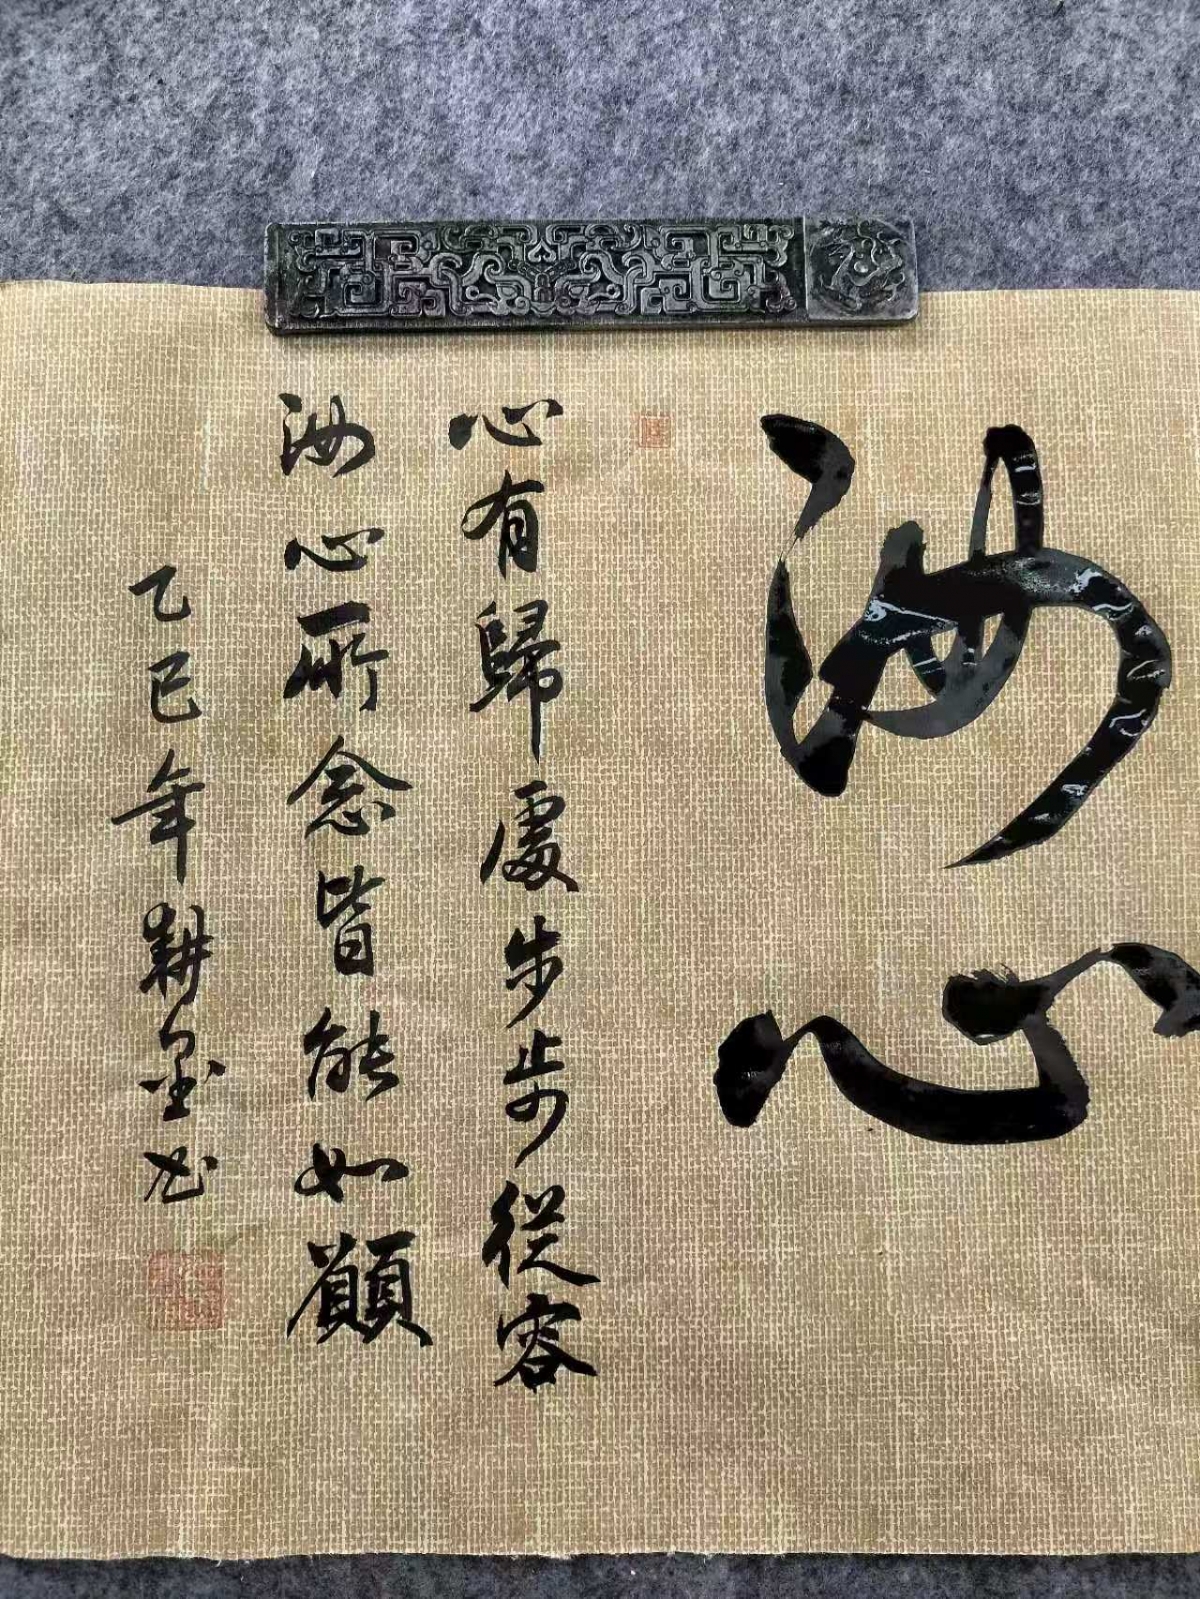 汝心
心有歸處步步從容
汝心所念皆能如願
乙巳年耕墨书